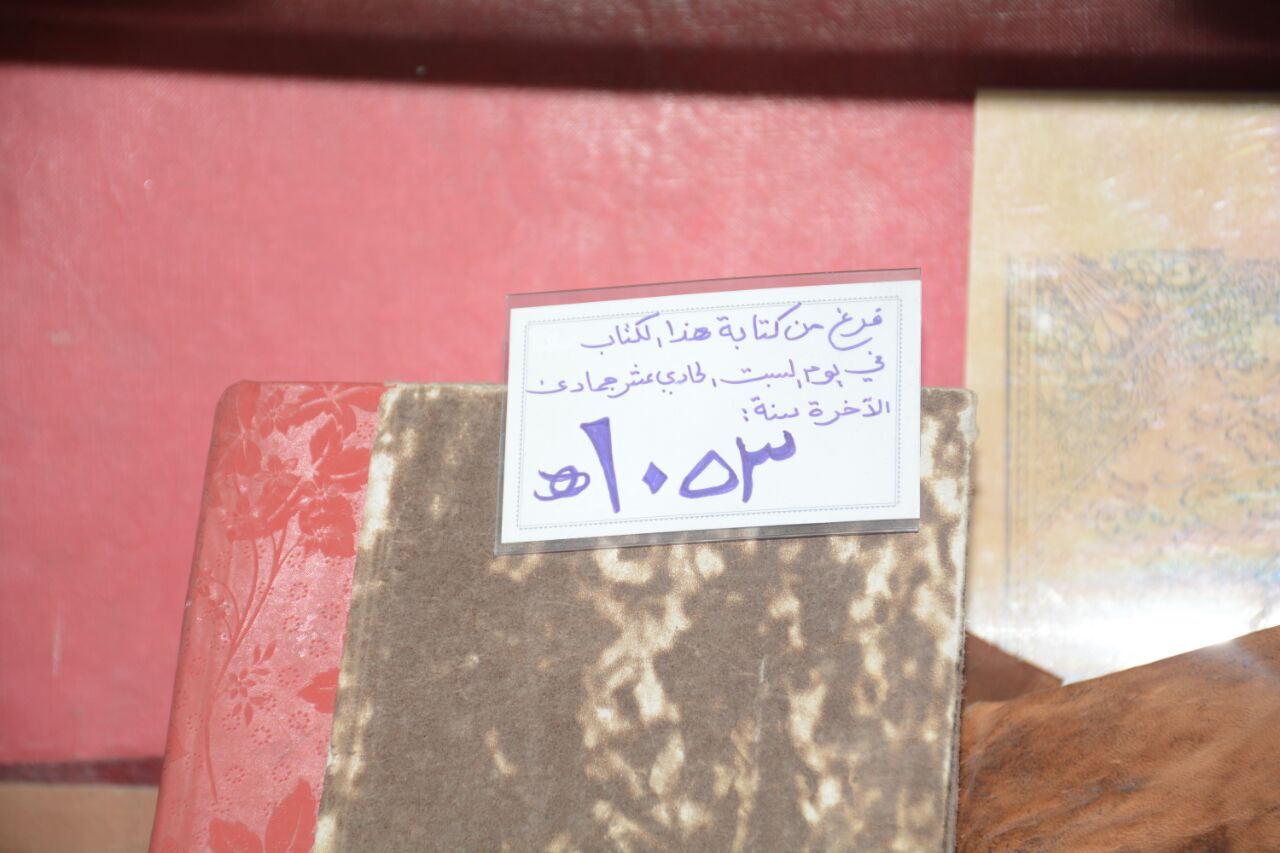 فرغ من كتابة هذا الكتاب
في يوم السبت الحادي عشر جمادى
الآخرة سنة:
١٠٥٣هـ